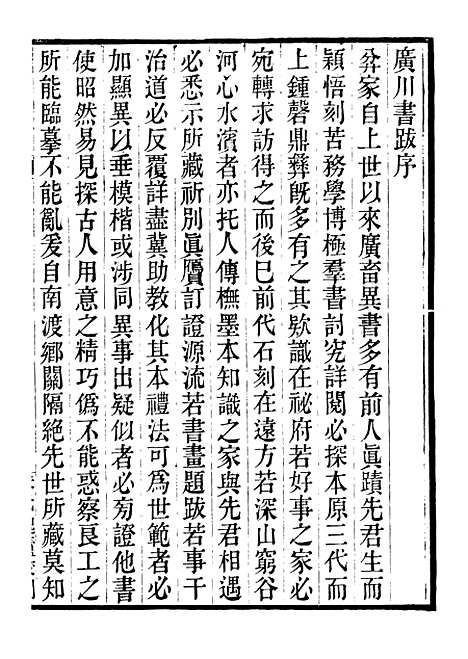 廣川書跋序
弅家自上世以來廣畜異書多有前人眞蹟先君生而
穎悟刻苦務學博極羣書討究詳閱必探本原三代而
上鍾磬鼎彝旣多有之其欵識在祕府若好事之家必
宛轉求訪得之而後巳前代石刻在遠方若深山窮谷
河心水濱者亦托人傳橅墨本知識之家與先君相遇
必悉示所藏祈別眞贋訂證源流若書畫題跋若事干
治道必反覆詳盡冀助教化其本禮法可為世範者必
加顯異以垂模楷或涉同異事出疑似者必㫄證他書
使昭然易見探古人用意之精巧偽不能惑察良工之
所能臨摹不能亂爰自南渡鄉關隔絕先世所藏莫知